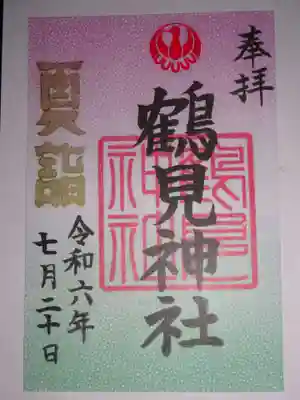 奉拝
鶴見神社
鶴見神社
夏詣
令和六年
七月二十日